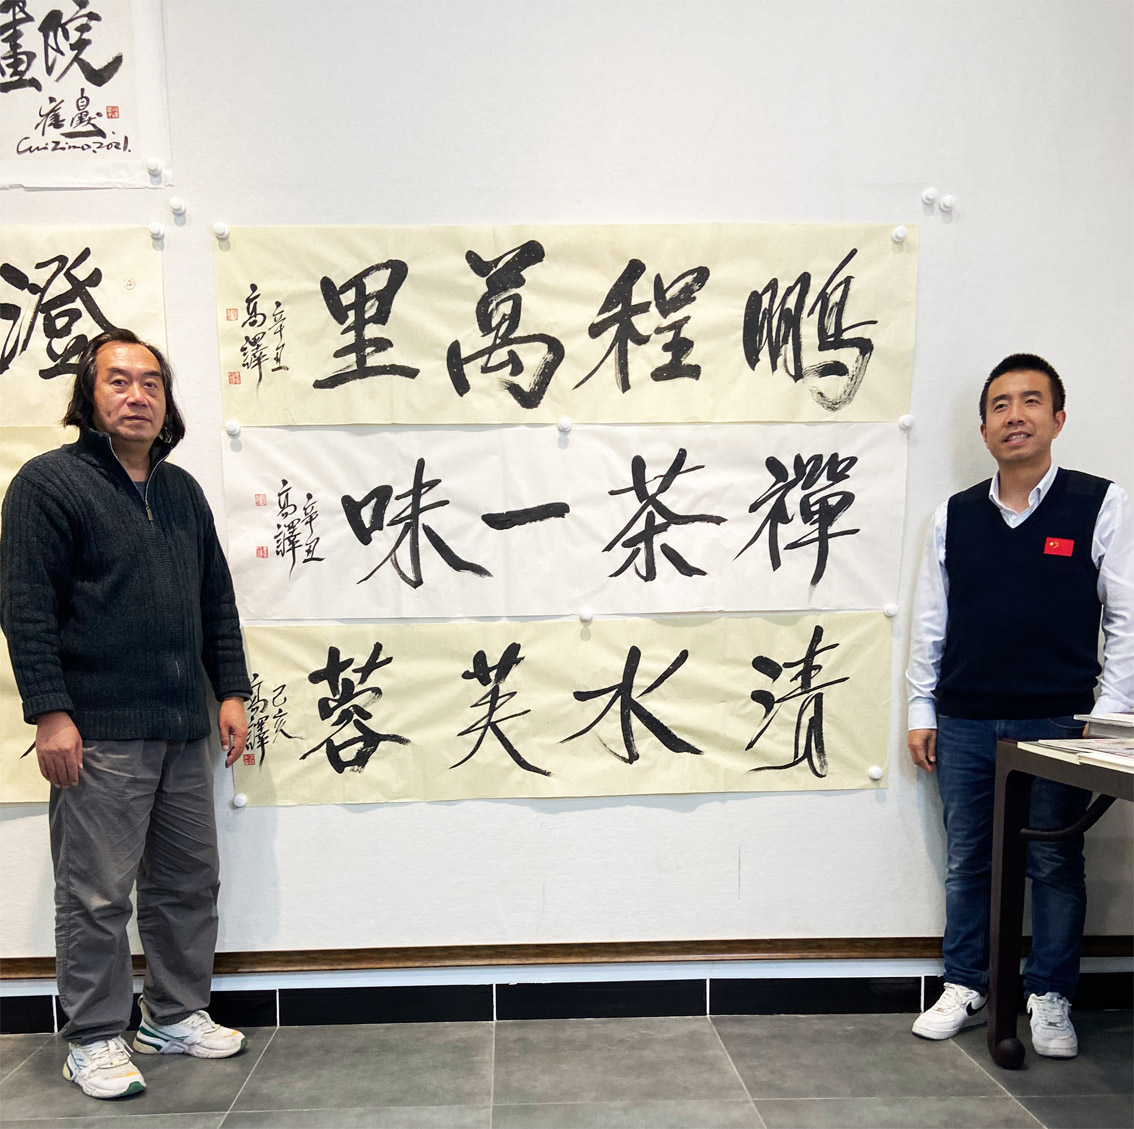 畫院
崔自默
Cui Zimo.2021.
澄
鵬程萬里
辛丑
高譯
禪茶一味
辛丑
高譯
清水芙蓉
己亥
高譯